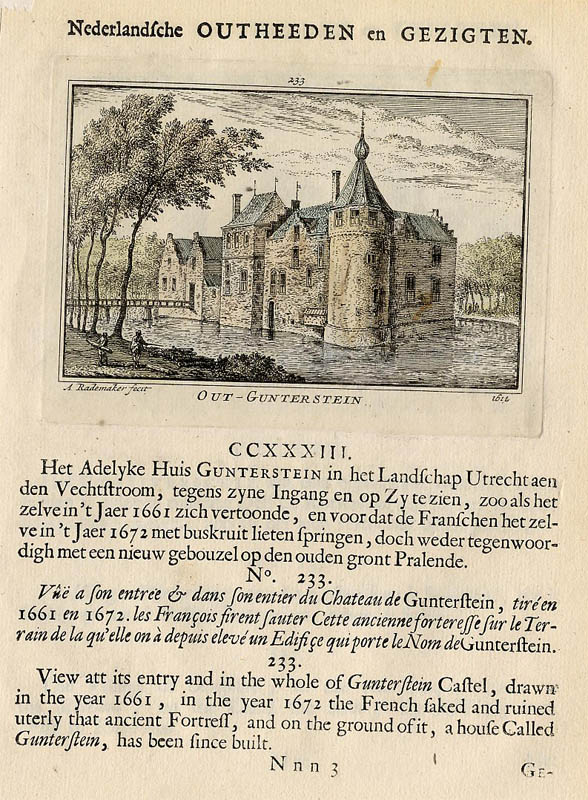 Nederlandſche OUTHEEDEN en GEZIGTEN.
233
A Rademaker fecit
OUT-GUNTERSTEIN
CCXXXIII.
Het Adelyke Huis GUNTERSTEIN in het Landſchap Utrecht aen
den Vechtſtroom, tegens zyne Ingang en op Zy te zien, zoo als het
zelve in 't Jaer 1661 zich vertoonde, en voor dat de Franſchen het zel-
ve in 't Jaer 1672 met buskruit lieten ſpringen, doch weder tegenwoor-
digh met een nieuw gebouzel op den ouden gront Pralende.
N°. 233.
Vûë a ſon entreé & dans ſon entier du Chateau de Gunterſtein, tiré en
1661 en 1672. les François firent ſauter Cette ancienne fortereſſe ſur le Ter-
rain de la qu'elle on à depuis elevé un Edifiçe qui porte le Nom de Gunterſtein.
233.
View att its entry and in the whole of Gunterſtein Caſtel, drawn
in the year 1661, in the year 1672 the French ſaked and ruined
uterly that ancient Fortreſſ, and on the ground of it, a houſe Called
Gunterſtein, has been ſince built.
Nnn 3
GE-